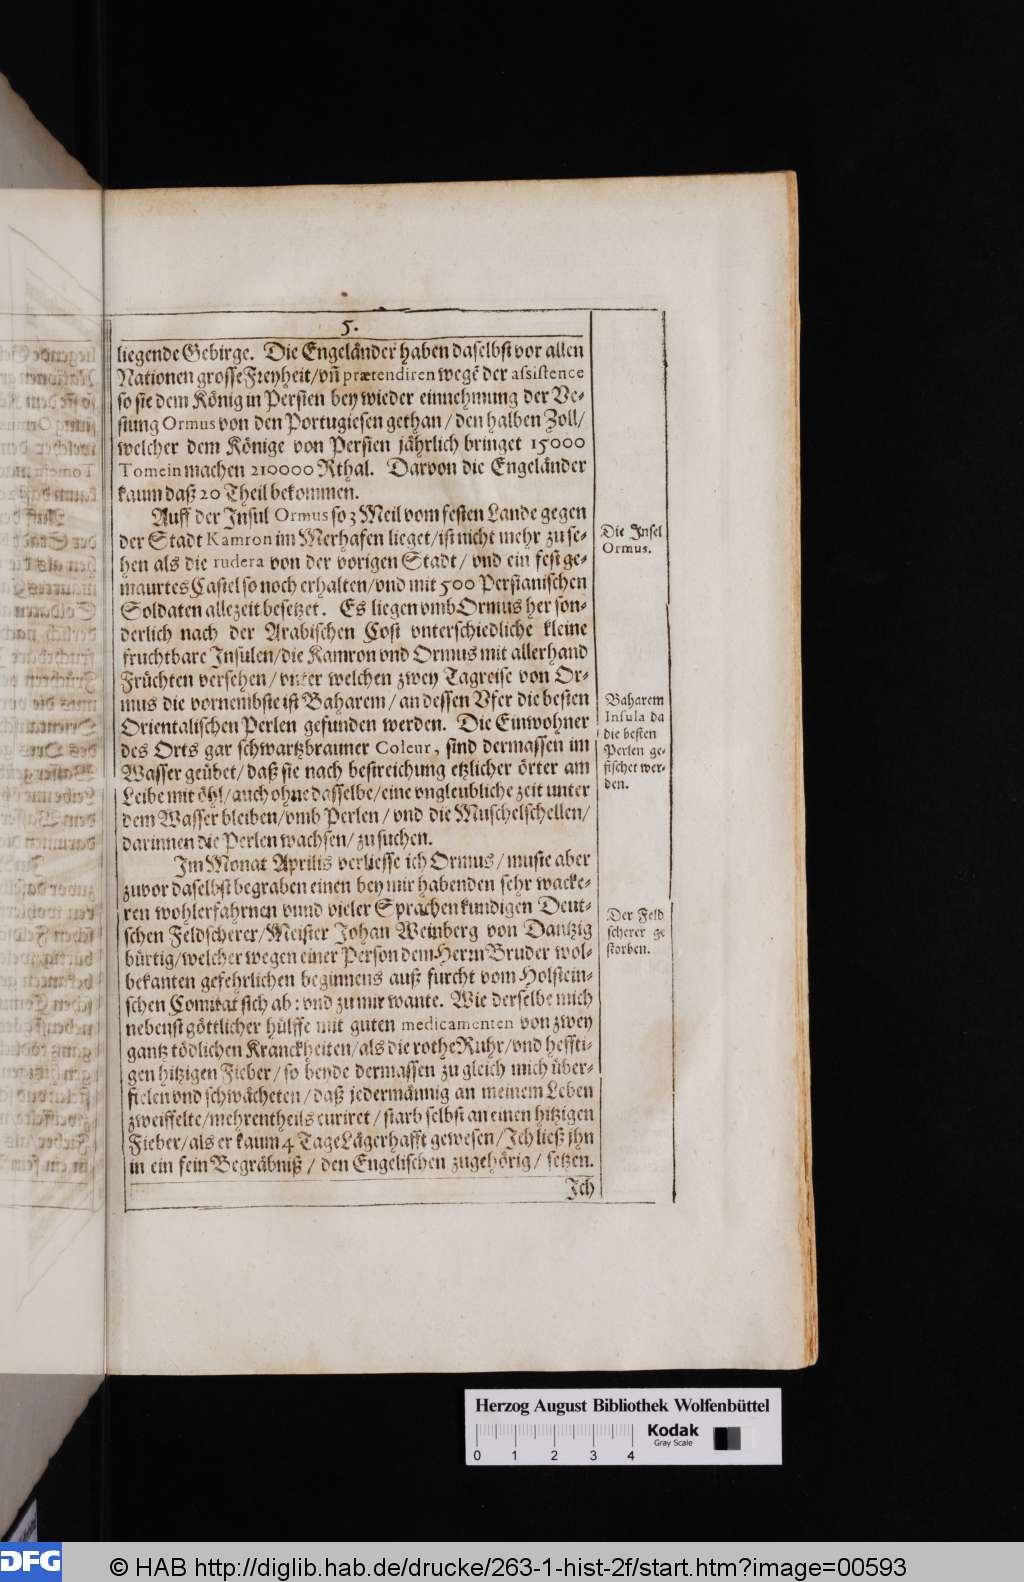 5.
liegende Gebirge. Die Engeländer haben daselbst vor allen
Nationen grosse Freyheit/ vñ prætendiren wegẽ der assistence
so sie dem König in Persien bey wieder einnehmung der Ve-
stung Ormus von den Portugiesen gethan / den halben Zoll/
welcher dem Könige von Persien jährlich bringet 15000
Tomein machen 210000 Rthal. Darvon die Engeländer
kaum daß 20 Theil bekommen.
Auff der Insul Ormus so 3 Meil vom festen Lande gegen
der Stadt Kamron im Merhafen lieget/ ist nicht mehr zu se-
hen als die rudera von der vorigen Stadt / vnd ein fest ge-
maurtes Castel so noch erhalten/ vnd mit 500 Persianischen
Soldaten allezeit besetzet. Es liegen vmb Ormus her son-
derlich nach der Arabischen Cost vnterschiedliche kleine
fruchtbare Insulen/ die Kamron vnd Ormus mit allerhand
Früchten versehen/ vnter welchen zwey Tagreise von Or-
mus die vornembste ist Baharem / an dessen Vfer die besten
Orientalischen Perlen gefunden werden. Die Einwohner
des Orts gar schwartzbrauner Coleur, sind dermassen im
Wasser geübet/ daß sie nach bestreichung etzlicher örter am
Leibe mit öhl/ auch ohne dasselbe/ eine vngleubliche zeit unter
dem Wasser bleiben/ vmb Perlen / vnd die Muschelschellen/
darinnen die Perlen wachsen/ zu suchen.
Im Monat Aprilis verliesse ich Ormus / muste aber
zuvor daselbst begraben einen bey mir habenden sehr wacke-
ren wohlerfahrnen vnnd vieler Sprachen kundigen Deut-
schen Feldscherer/ Meister Johan Weinberg von Dantzig
bürtig/ welcher wegen einer Person dem Herrn Bruder wol-
bekanten gefehrlichen beginnens auß furcht vom Holstein-
schen Comitat sich ab: vnd zu mir wante. Wie derselbe mich
nebenst göttlicher hülffe mit guten medicamenten von zwey
gantz tödlichen Kranckheiten/ als die rothe Ruhr/ vnd heffti-
gen hitzigen Fieber / so beyde dermassen zu gleich mich über-
fielen vnd schwächeten / daß jedermännig an meinem Leben
zweiffelte/ mehrentheils curiret / starb selbst an einen hitzigen
Fieber/ als er kaum 4 Tage Lägerhafft gewesen/ Ich ließ jhn
in ein fein Begräbniß / den Engelischen zugehörig / setzen.
Ich
Die Insel
Ormus.
Baharem
Insula da
die besten
Perlen ge-
fischet wer-
den.
Der Feld
scherer ge
storben.
Herzog August Bibliothek Wolfenbüttel
Kodak
Gray Scale
0 1 2 3 4
DFG
© HAB http://diglib.hab.de/drucke/263-1-hist-2f/start.htm?image=00593